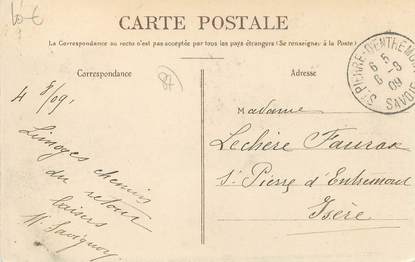 10€
CARTE POSTALE
La Correspondance au recto n'est pas acceptée par tous les pays étrangers (Se renseigner à la Poste)
Correspondance
4 8/09.
Limoges chemin
du retour
baisers
Adresse
Madame
Lechère Faurax
St Pierre d'Entremont
Isère
ST PIERRE-D'ENTREMONT
6 5
6-8
09
SAVOIE